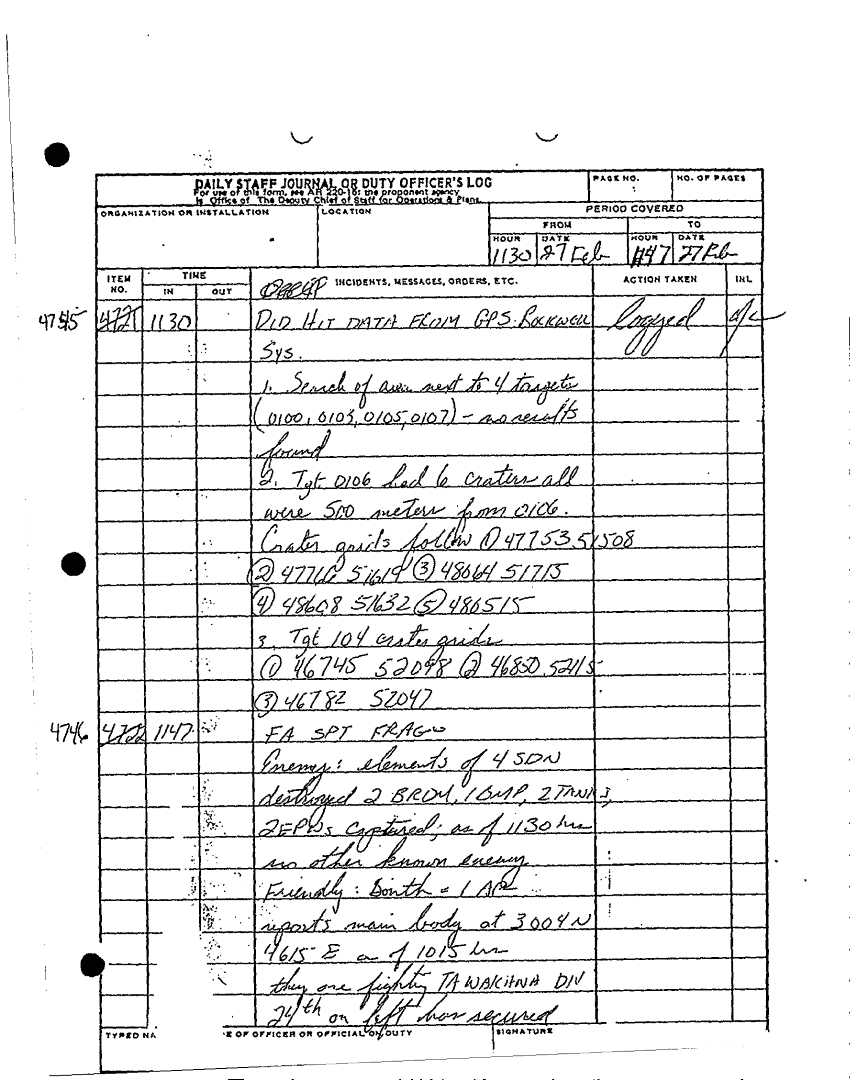 DAILY STAFF JOURNAL OR DUTY OFFICER'S LOG
For use of this form, see AR 220-15; the proponent agency
is Office of The Deputy Chief of Staff for Operations & Plans.
PAGE NO.
NO. OF PAGES
ORGANIZATION OR INSTALLATION
LOCATION
PERIOD COVERED
FROM
TO
HOUR DATE HOUR DATE
1130 27 Feb 1147 27 Feb
ITEM NO.
TIME
IN OUT
INCIDENTS, MESSAGES, ORDERS, ETC.
ACTION TAKEN
INL
4745 1130 DID HIT DATA FROM GPS-Rockwell logged
Sys.
1. Search of area next to 4 targets
(0100, 0103, 0105, 0107) - no results
found
2. Tgt 0106 had 6 craters all
were 500 meters from 0106.
Crater grids follow ① 47753 51508
② 51619 ③ 48664 51715
④ 48608 51632 ⑤ 486515
3. Tgt 104 crater grids
① 46745 52098 ② 46850 52115
③ 46782 52047
4746 4722 1147 FA SPT FRAGO
Enemy: elements of 4 SDN
destroyed 2 BRDM, 1 BMP, 2 TANKS,
2 EPWs captured; as of 1130 hrs
no other known enemy
Friendly: South = 1 AR
reports main body at 3004 N
4615 E as of 1015 hrs
they are fighting TAWAKLNA DIV
24th on left has secured
TYPED NA
E OF OFFICER OR OFFICIAL ON DUTY
SIGNATURE